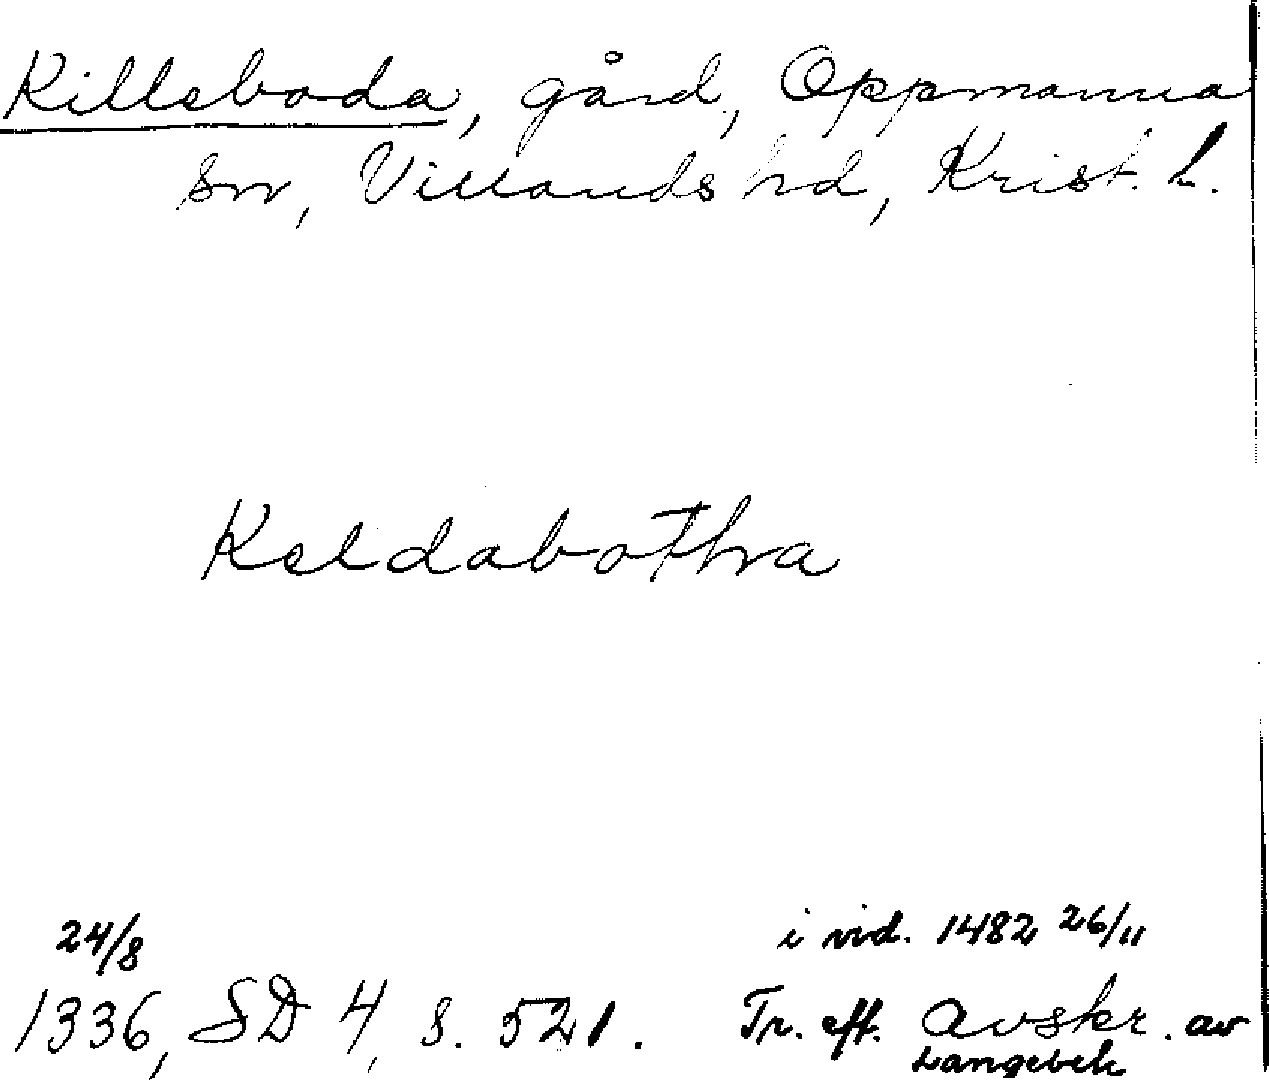 Killeboda, gård, Oppmanna
sn, Villands hd, Krist. l.
Keldabothra
24/8
1336, SD 4, s. 521.
i vid. 1482 26/11
Tr. eft. avskr. av
Langebek